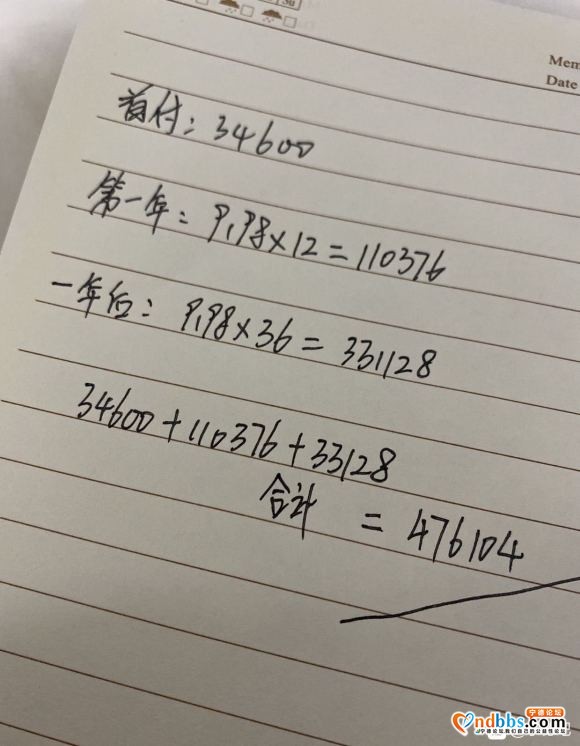 Mem
Date
首付：34600
第一年：9198×12=110376
一年后：9198×36=331128
34600+110376+33128
合计 =476104
宁德论坛
ndbbs.com
宁德论坛我们自己的公益性论坛